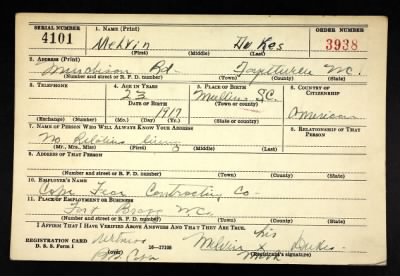 SERIAL NUMBER 1. NAME (Print) ORDER NUMBER
4101 Melvin Dukes 3938
(First) (Middle) (Last)
2. ADDRESS (Print)
Murchison Rd. Fayetteville N.C.
(Number and street or R. F. D. number) (Town) (County) (State)
3. TELEPHONE 4. AGE IN YEARS 5. PLACE OF BIRTH 6. COUNTRY OF CITIZENSHIP
Mullins S.C.
DATE OF BIRTH (Town or county)
1917 American
(Exchange) (Number) (Mo.) (Day) (Yr.) (State or country)
7. NAME OF PERSON WHO WILL ALWAYS KNOW YOUR ADDRESS 8. RELATIONSHIP OF THAT PERSON
No Relatives living
(Mr., Mrs., Miss) (First) (Middle) (Last)
9. ADDRESS OF THAT PERSON
(Number and street or R. F. D. number) (Town) (County) (State)
10. EMPLOYER'S NAME
Cape Fear Contracting Co
11. PLACE OF EMPLOYMENT OR BUSINESS
Fort Bragg N.C.
(Number and street or R. F. D. number) (Town) (County) (State)
I AFFIRM THAT I HAVE VERIFIED ABOVE ANSWERS AND THAT THEY ARE TRUE.
REGISTRATION CARD Witness his
D. S. S. Form 1 16-17105 Melvin x Dukes
mark (Registrant's signature)